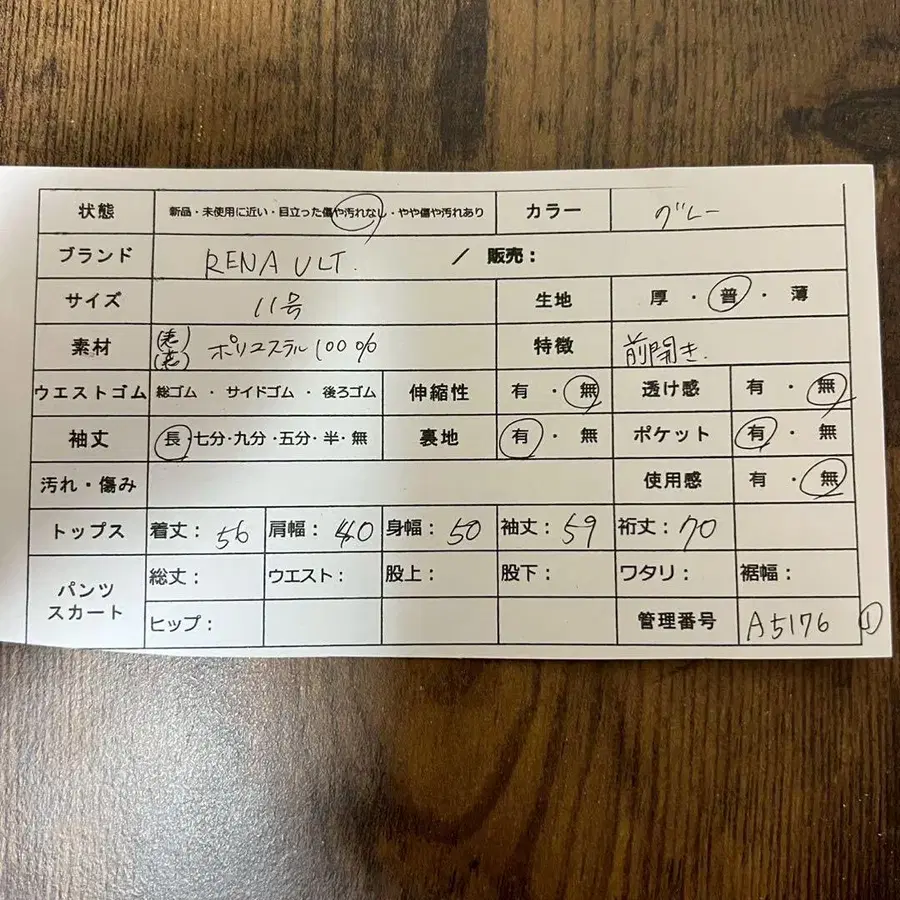 状態 新品・未使用に近い・目立った傷や汚れなし・やや傷や汚れあり カラー グレー
ブランド RENAULT. / 販売：
サイズ 11号 生地 厚・普・薄
素材 (表)(裏) ポリエステル100% 特徴 前開き.
ウエストゴム 総ゴム ・ サイドゴム ・ 後ろゴム 伸縮性 有・無 透け感 有・無
袖丈 長・七分・九分・五分・半・無 裏地 有・無 ポケット 有・無
汚れ・傷み 使用感 有・無
トップス 着丈：56 肩幅：40 身幅：50 袖丈：59 裄丈：70
パンツ スカート 総丈： ウエスト： 股上： 股下： ワタリ： 裾幅：
ヒップ： 管理番号 A5176 ①